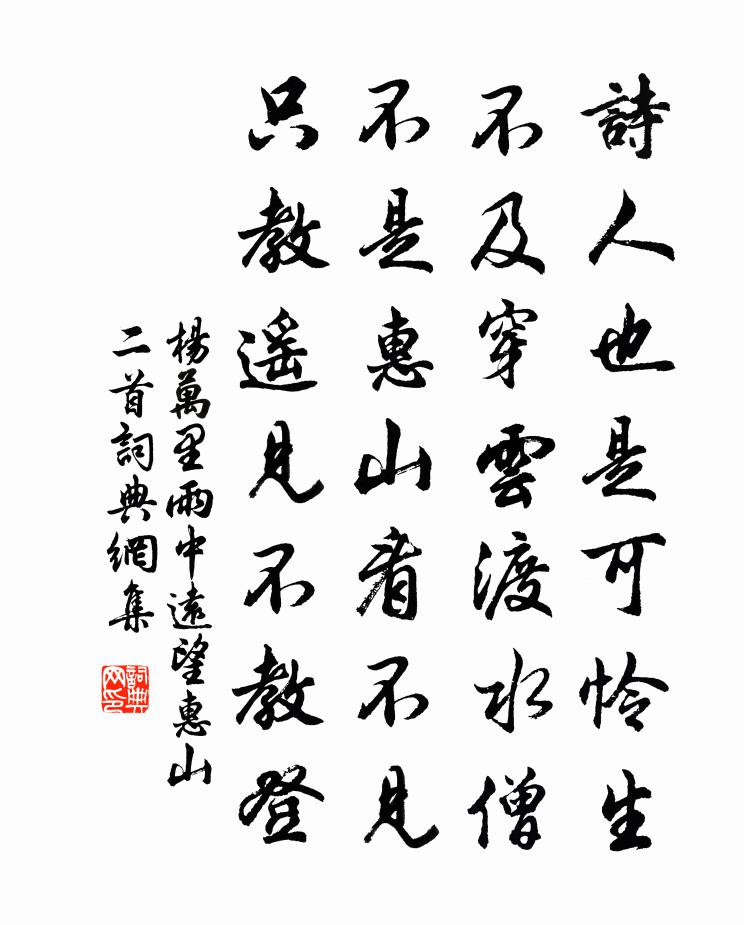 詩人也是可怜生
不及穿雲渡水僧
不是惠山看不見
只教遥見不教登
楊萬里雨中遠望惠山
二首詞典網集
詞典网印